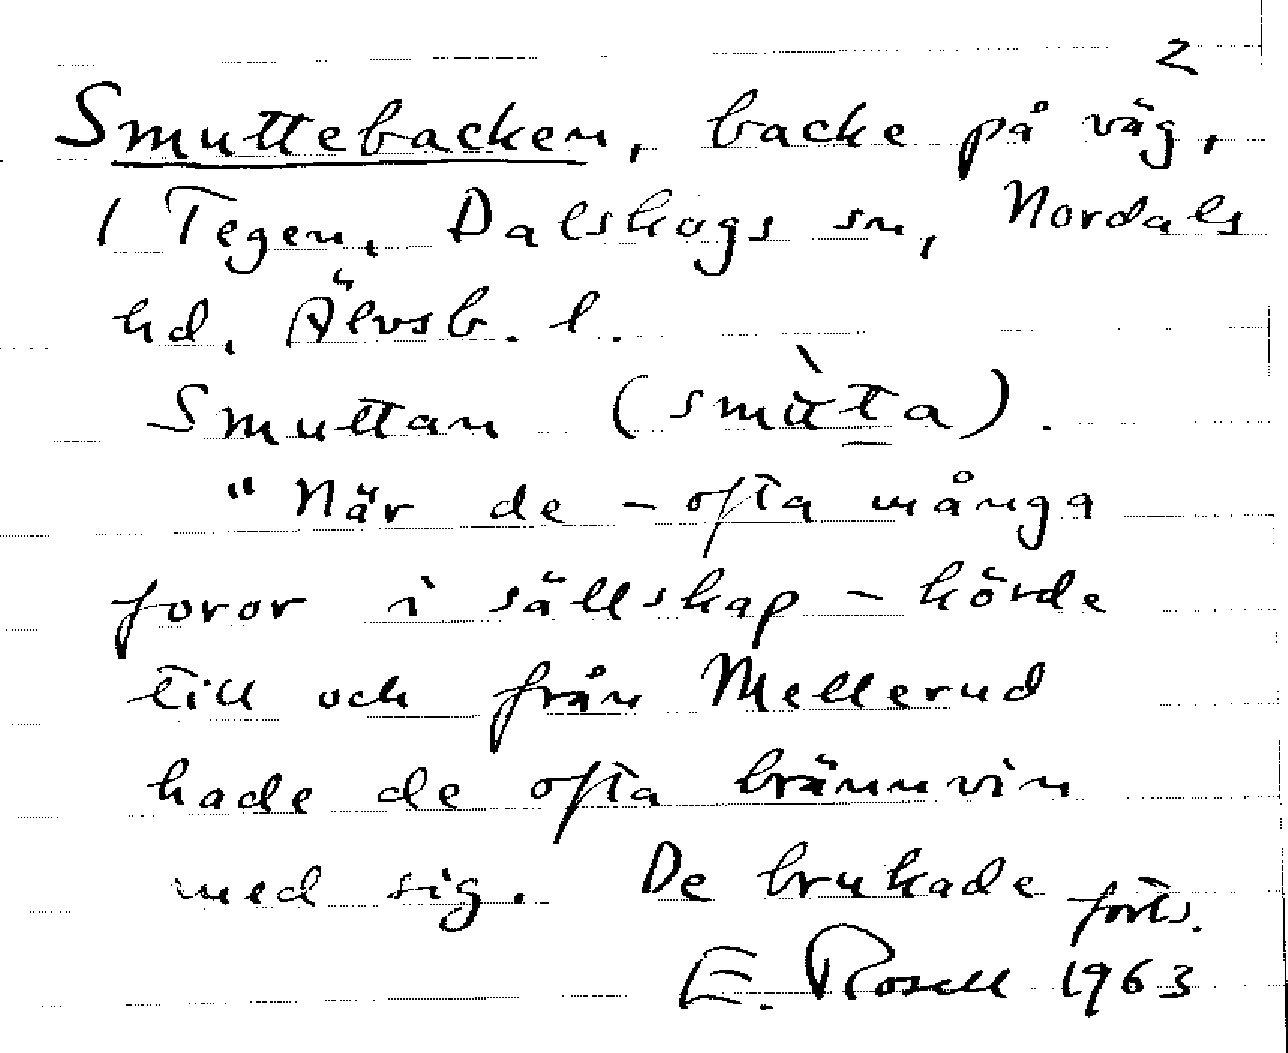 2
Smuttebacken, backe på väg,
1 Tegen, Dalskogs sn, Nordals
hd, Älvsb. l.
Smuttan (smùt̲a).
"När de – ofta många
foror i sällskap – körde
till och från Mellerud
hade de ofta brännvin
med sig. De brukade
forts.
E. Rosell 1963